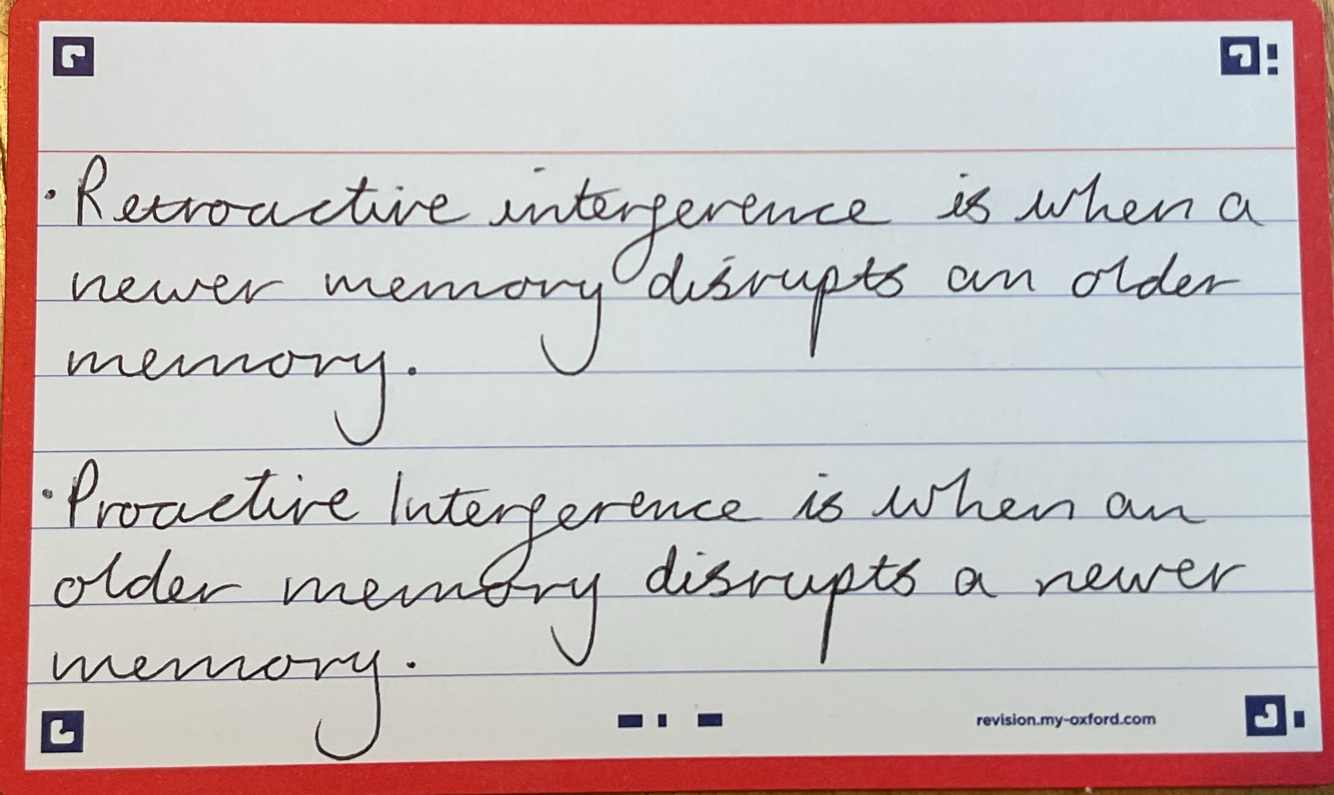 · Retroactive interference is when a
newer memory disrupts an older
memory.
· Proactive Interference is when an
older memory disrupts a newer
memory.
revision.my-oxford.com